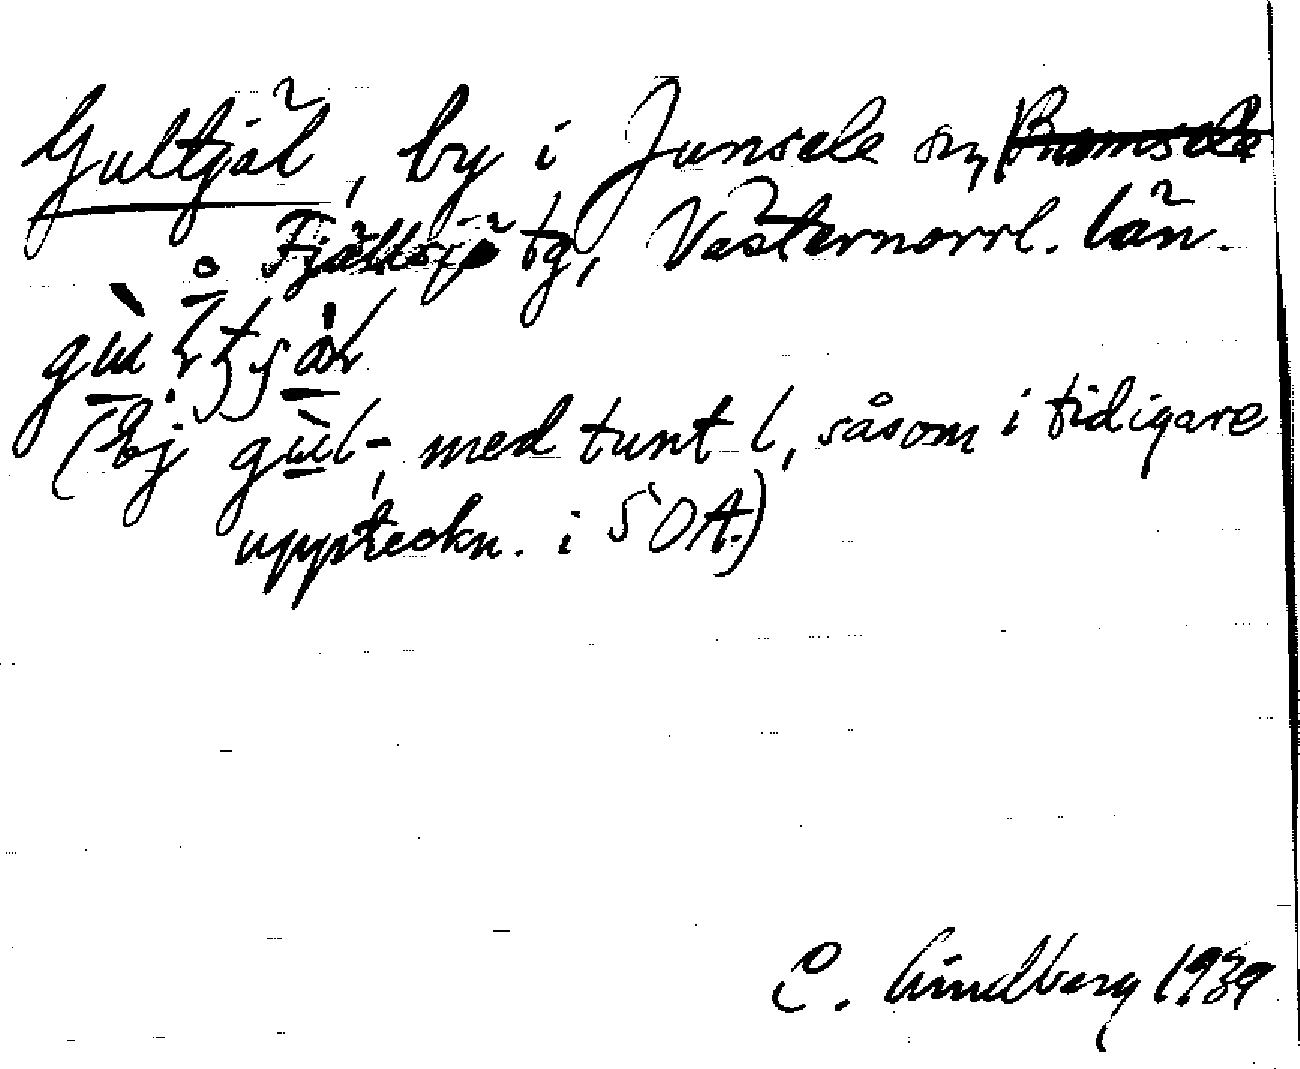 Gultjäl, by i Junsele sn, ~~Ramsele~~
Fjällsjö tg, Västernorrl. län.
(Ej gùl-, med tunt l, såsom i tidigare
uppteckn. i SOA.)
C. Lindberg 1939